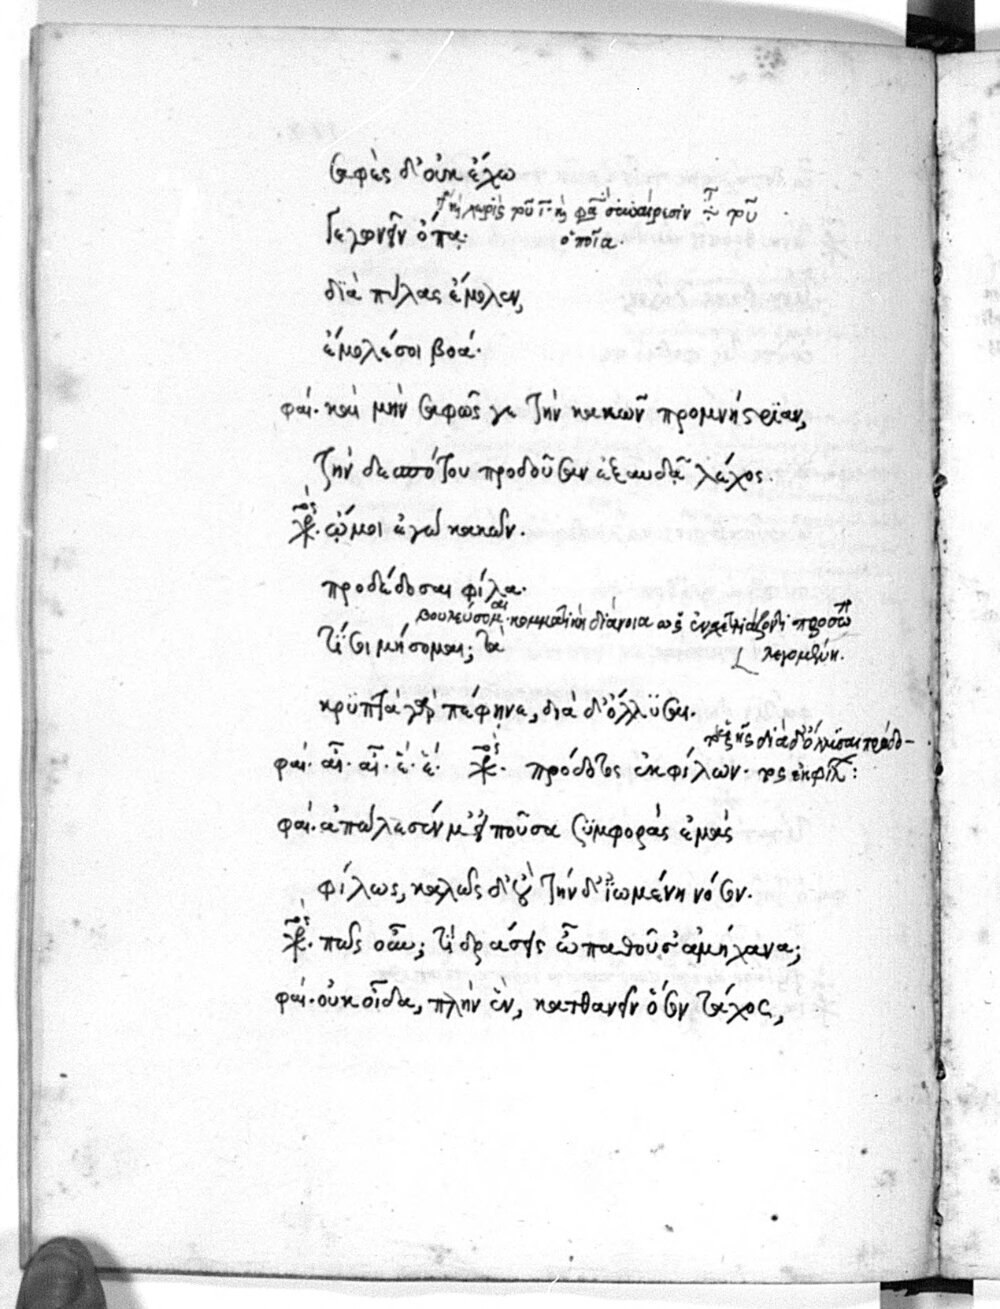 σαφὲς δ' οὐκ ἔχω
γεγωνεῖν ὅπα·
ὁποῖα
διὰ πύλας ἔμολεν,
ἔμολέ σοι βοά·
φαί· καὶ μὴν σαφῶς γε τὴν κακῶν προμνήστριαν,
τὴν δεσπότου προδοῦσαν ἐξαυδᾷ λέχος.
χο· ὤμοι ἐγὼ κακῶν·
προδέδοσαι φίλα·
βουλεύσομαι· κομματικὴ διάνοια
τί σοι μήσομαι; τὰ
κρυπτὰ γὰρ πέφηνε, διὰ δ' ὄλλυσαι.
φαί· αἶ· αἶ· ἒ· ἒ· χο· πρόδοτος ἐκ φίλων·
φαί· ἀπώλεσέν μ' εἰποῦσα συμφορὰς ἐμὰς
φίλως, καλῶς δ' οὐ τήνδ' ἰωμένη νόσον.
χο· πῶς οὖν; τί δράσεις ὦ παθοῦσ' ἀμήχανα;
φαί· οὐκ οἶδα, πλὴν ἓν, κατθανεῖν ὅσον τάχος,